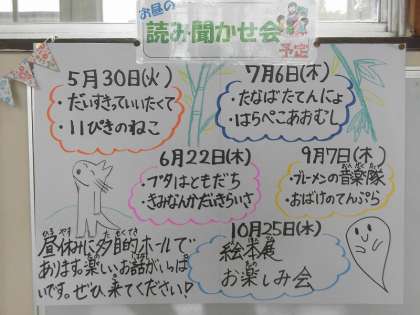 お昼の
読み聞かせ会
予定
5月30日(火)
・だいすきっていいたくて
・11ぴきのねこ
7月6日(木)
・たなばたてんにょ
・はらぺこあおむし
6月22日(木)
・ブタはともだち
・きみなんかだいきらいさ
9月7日(木)
・ブレーメンの音楽隊
・おばけのてんぷら
10月25日(水)
絵本展
お楽しみ会
昼休みに多目的ホールで
あります。楽しいお話がいっぱ
いです。ぜひ来てください!